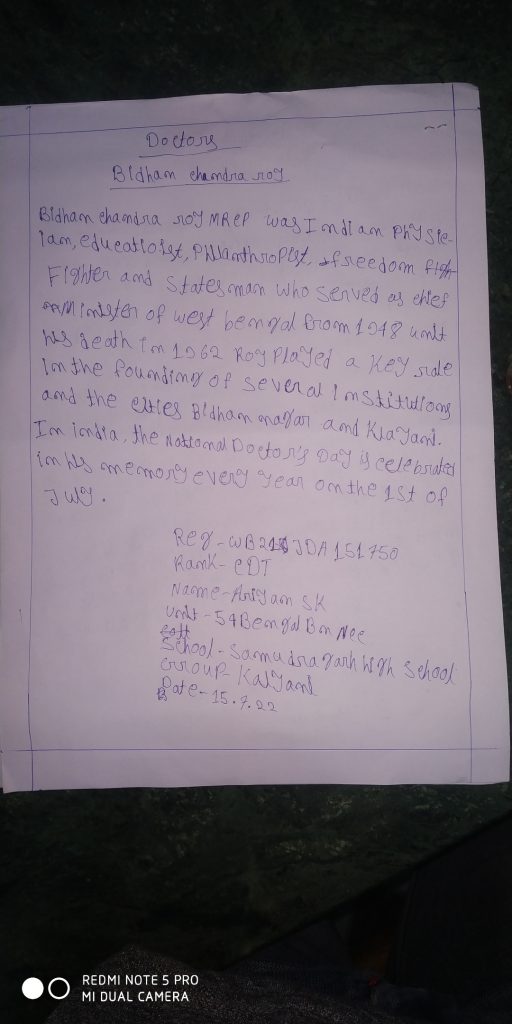 Doctors
Bidham chandra roy
Bidham chandra roy MRCP was Indian Physic-
ian, educationist, Philanthropist, freedom figh
Fighter and statesman who served as chief
Minister of west bengal from 1948 unit
his death in 1962 Roy Played a Key role
in the founding of several institutions
and the cities Bidham nagar and Klayani.
In india, the National Doctor's Day is celebrated
in his memory every year on the 1st of
July.
Reg-WB21JDA151750
Rank-CDT
Name-Ariyan SK
Unit-54 Bengal Bn Ncc
School-Samudragarh high School
Group-Kalyani
Date-15.7.22
REDMI NOTE 5 PRO
MI DUAL CAMERA